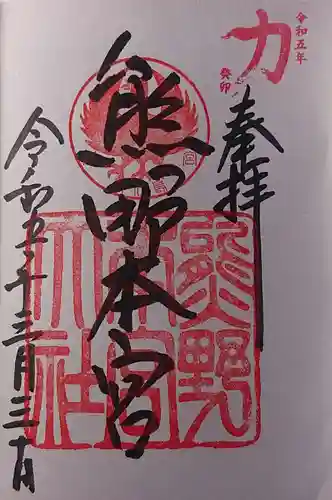 令和五年
力
癸卯
奉拝
熊野本宮
熊野本宮大社
令和五年三月三十日